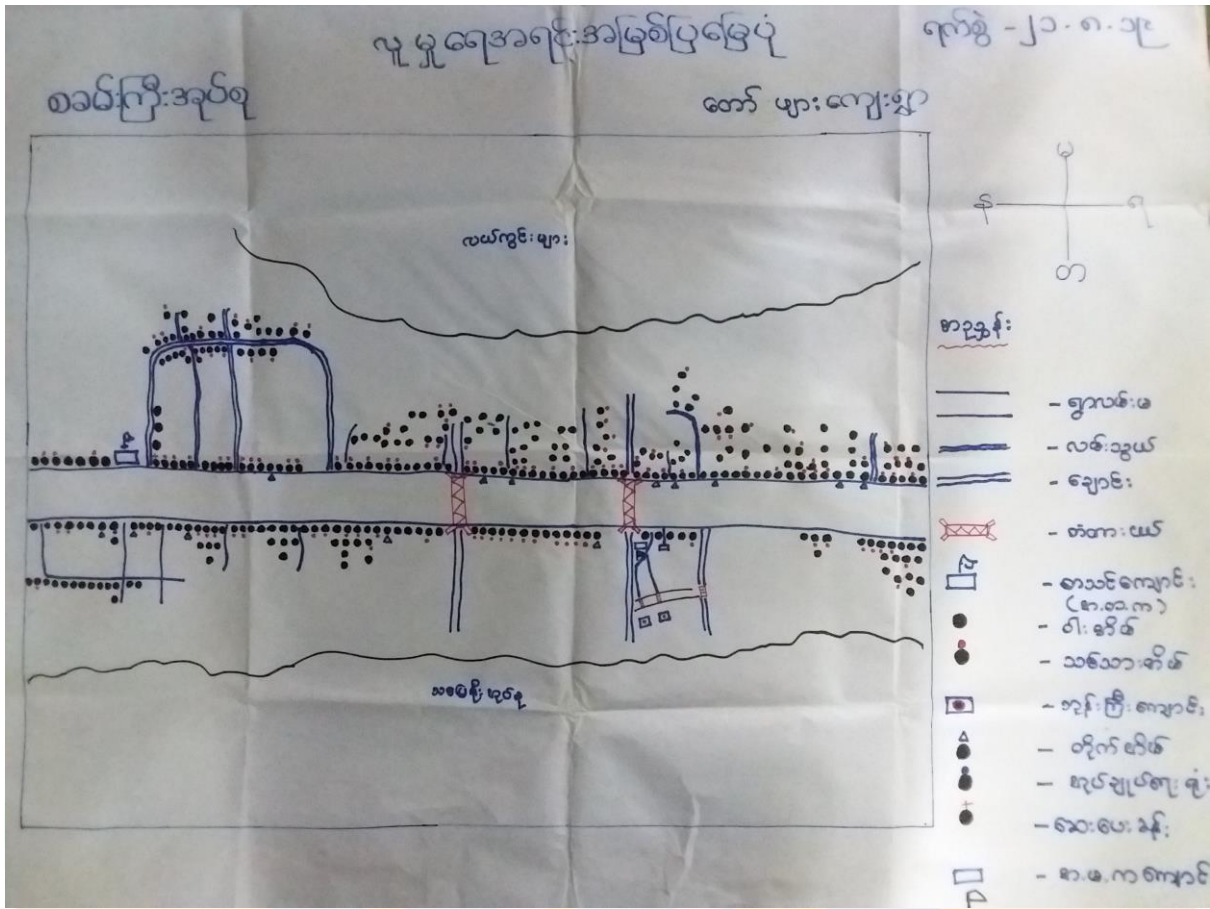 လူမှုရေအရင်းအမြစ်ပြမြေပုံ
ရက်စွဲ -၂၁.၈.၁၉
စခမ်းကြီးအုပ်စု
တော် ဖျားကျေးရွာ
မ
န
ရ
တ
လယ်ကွင်းများ
စာညွှန်း
- ရွာလမ်းမ
- လမ်းသွယ်
- ချောင်း
- တံတားငယ်
- စာသင်ကျောင်း
- ဝါးအိမ်
- သစ်သားအိမ်
- ဘုန်းကြီးကျောင်း
- တိုက်အိမ်
- အုပ်ချုပ်ရေးရုံး
- ဆေးပေးခန်း
- စာ.မ.က ကျောင်း